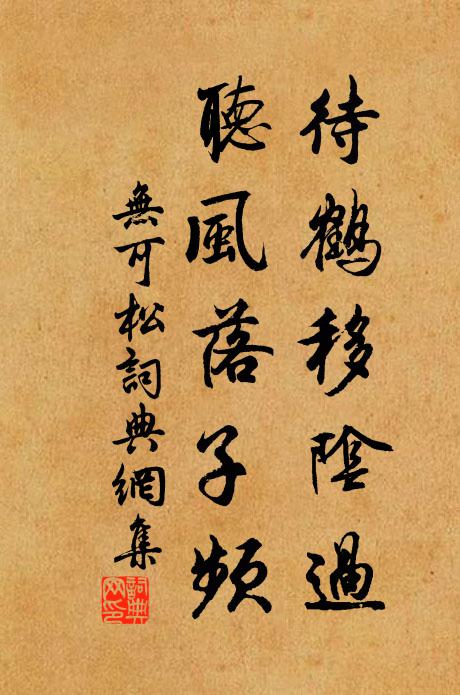 待鶴移陰過
聽風落子頻
無可松詞典網集
詞典網印